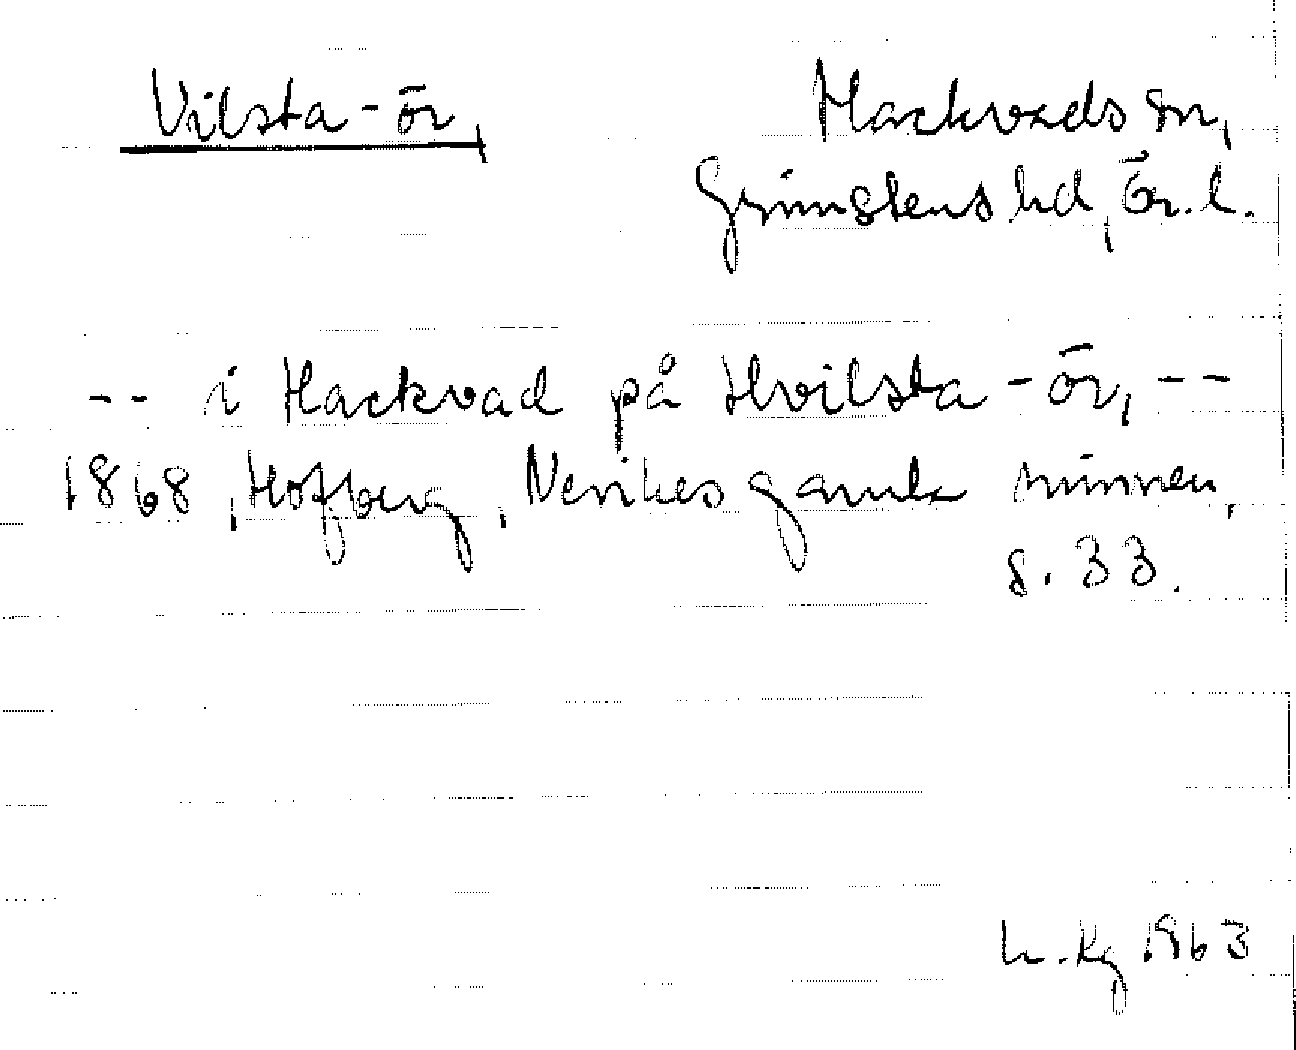 Vilsta-ör,
Hackvads sn,
Grimstens hd, Ör. l.
-- i Hackvad på Hvilsta-ör, --
1868, Hofberg, Nerikes gamla minnen,
s. 33.
L. Kg 1963